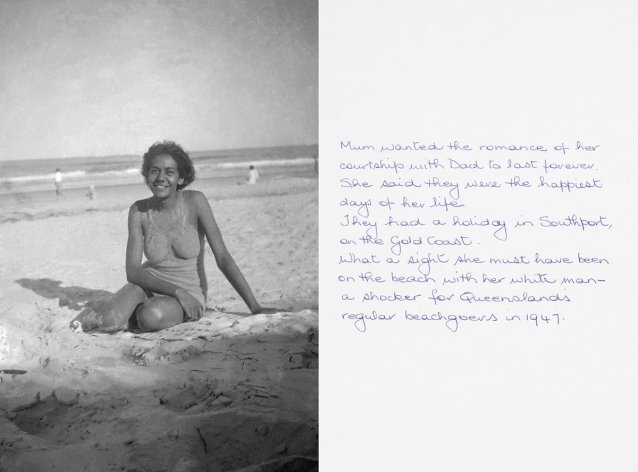 Mum wanted the romance of her
courtship with Dad to last forever.
She said they were the happiest
days of her life.
They had a holiday in Southport,
on the Gold Coast.
What a sight she must have been
on the beach with her white man–
a shocker for Queensland's
regular beachgoers in 1947.